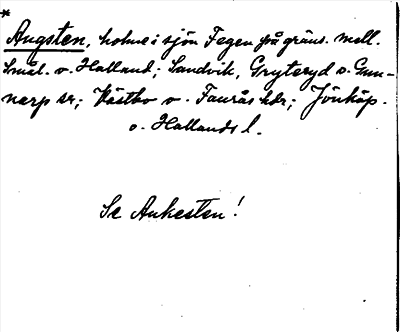 *
Augsten, holme i sjön Fegen på gräns. mell.
Smål. o. Halland; Sandvik, Gryteryd o. Gun-
narp sr; Västbo o. Faurås hdr; Jönköp.
o. Hallands l.
Se Aukesten!